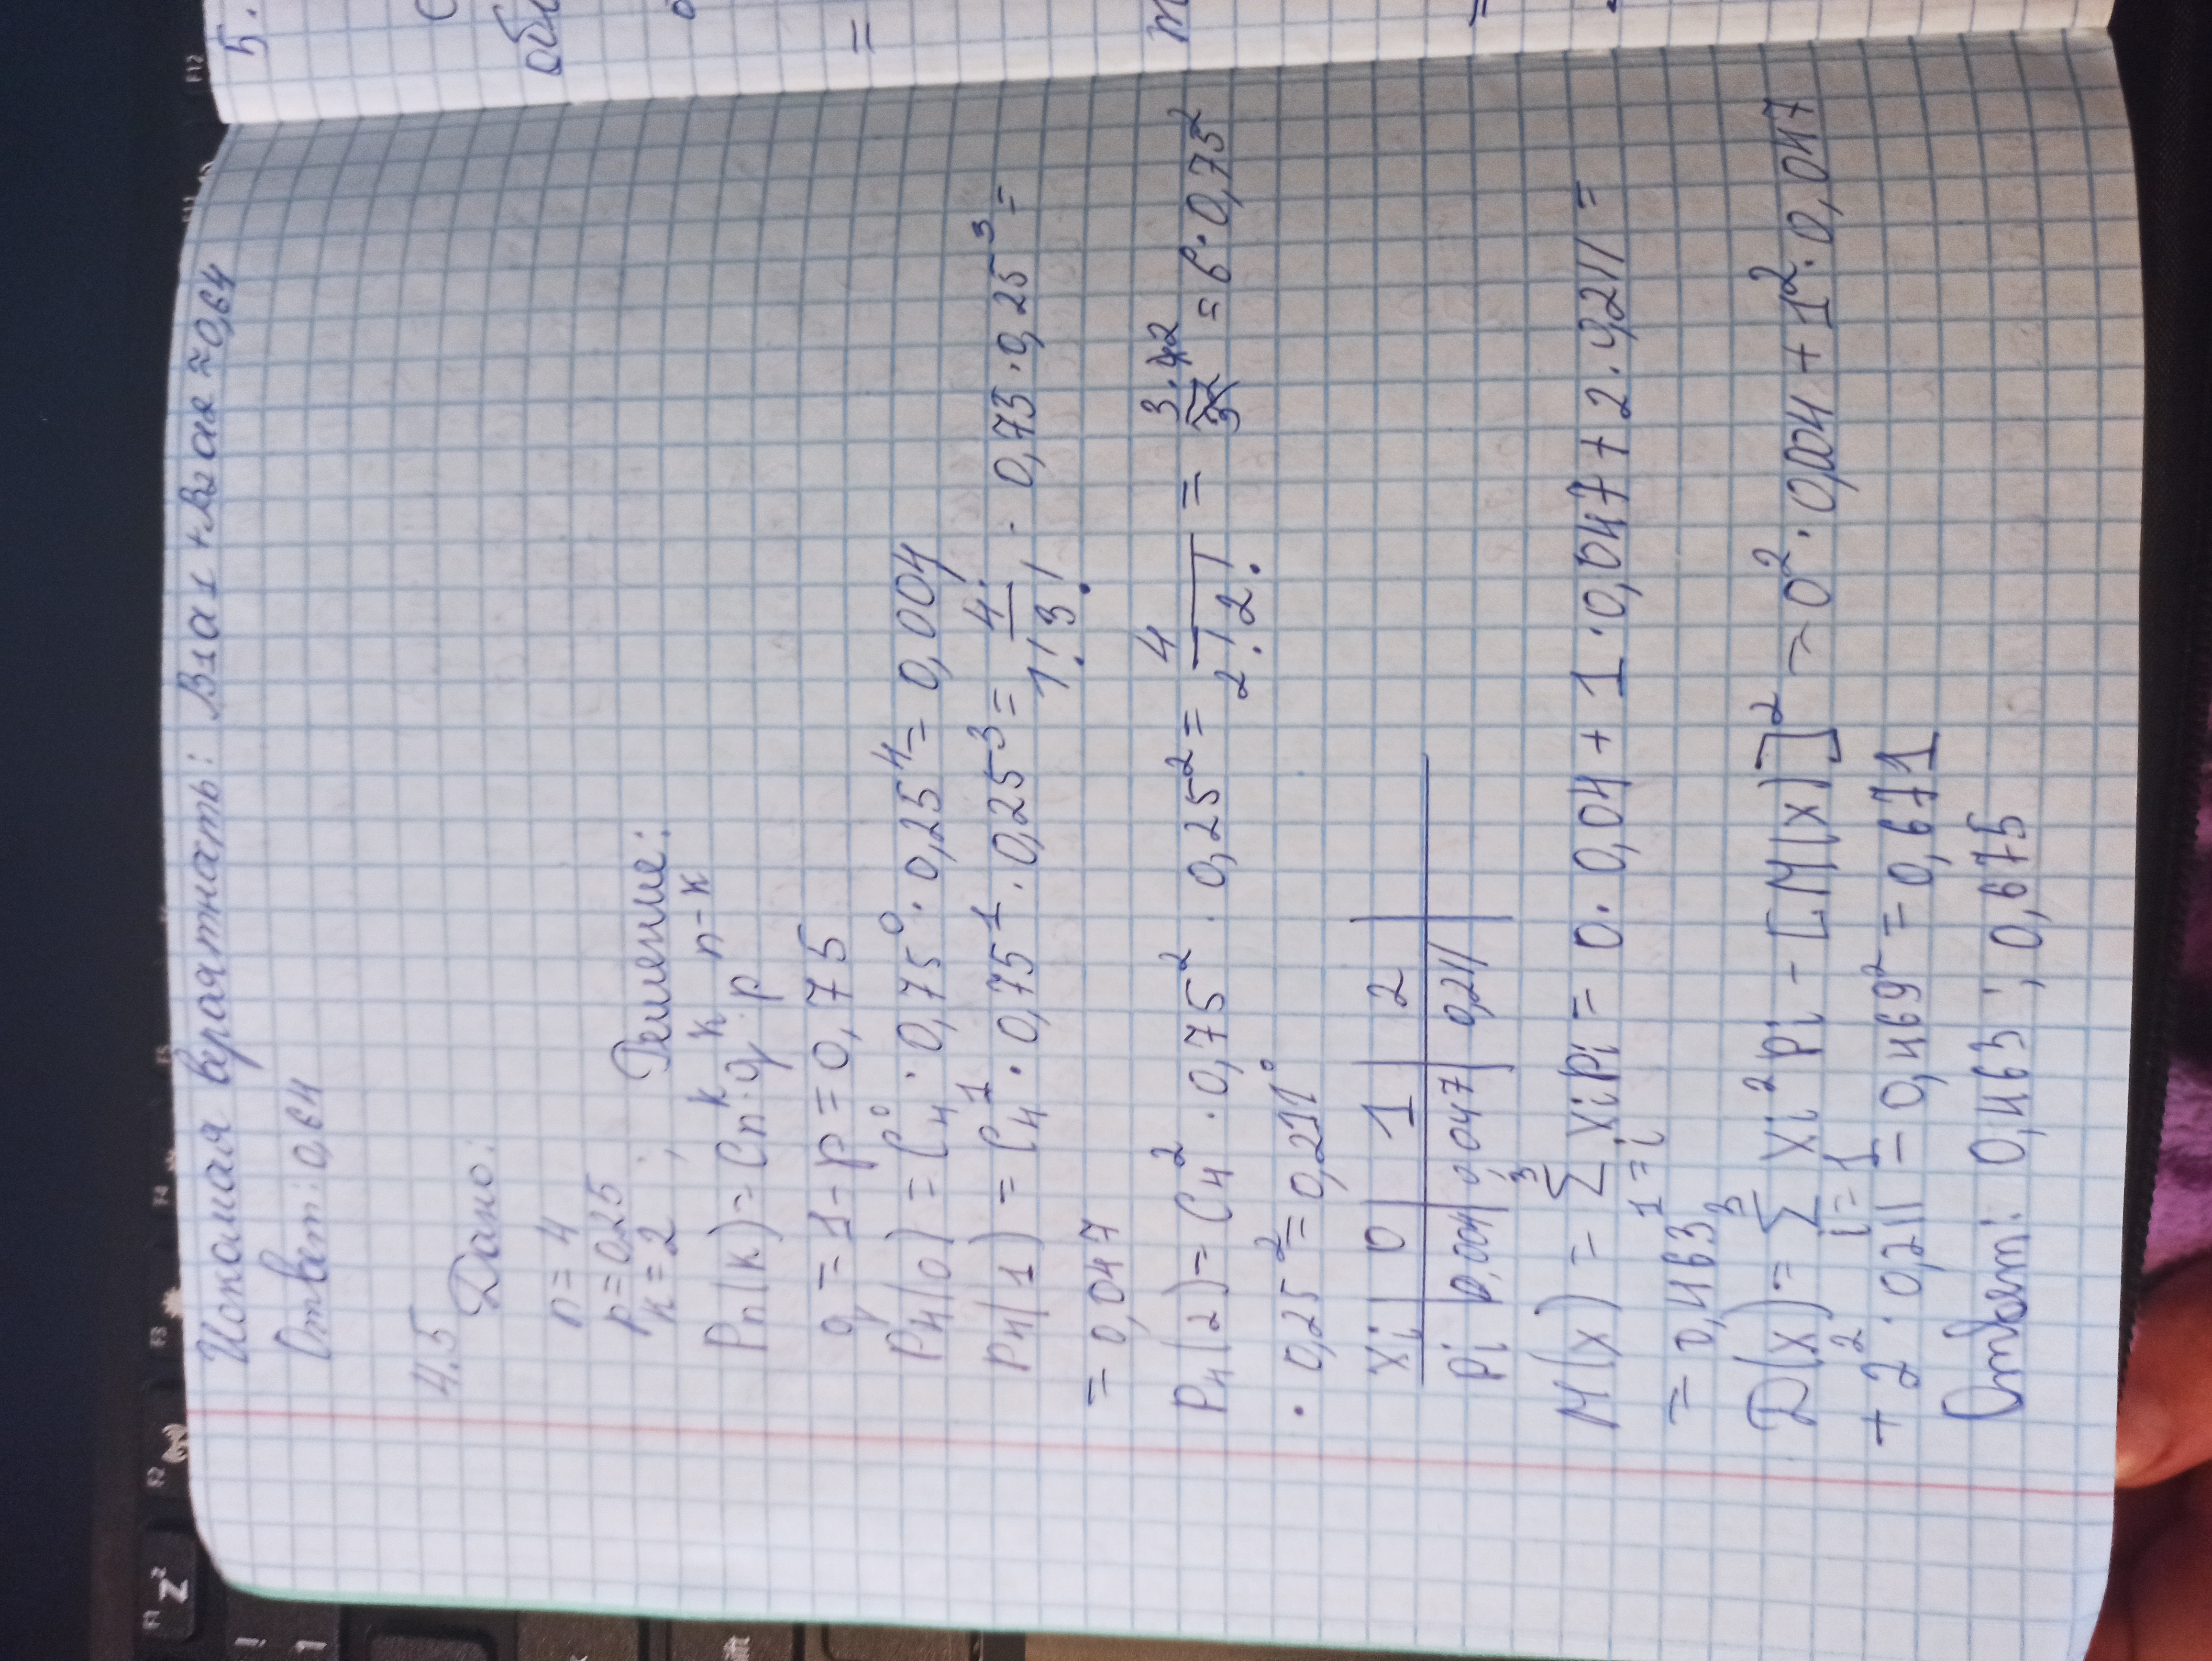 Искомая вераятность: В1а1 + В2а2 ≈ 0,64
Ответ: 0,64
4.5
Дано:
n = 4
p = 0,25
k = 2 ;
Решение:
Pn(k) = Cn^k · q^k · p^n-k
q = 1 - p = 0,75
P4(0) = C4^0 · 0,75^0 · 0,25^4 = 0,004
P4(1) = C4^1 · 0,75^1 · 0,25^3 = 4!/1!3! · 0,75 · 0,25^3 =
= 0,047
P4(2) = C4^2 · 0,75^2 · 0,25^2 = 4/2!2! = = 6 · 0,75^2
· 0,25^2 = 0,211
xi 0 1 2
pi 0,004 0,047 0,211
M(x) = Σ xipi = 0 · 0,04 + 1 · 0,047 + 2 · 4,211 =
= 0,463
D(x) = Σ xi^2 pi - [M(x)]^2 = 0^2 · 0,004 + 1^2 · 0,047
+ 2^2 · 0,211 - 0,469^2 = 0,671
Ответ: 0,463 ; 0,675
5.
=
F12
F5
F4
F3
F2
F1
Z
1